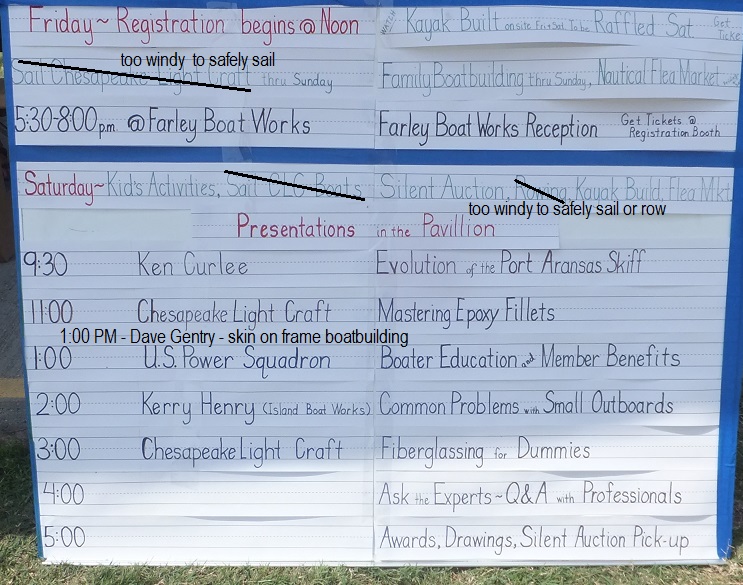 Friday~ Registration begins @ Noon WATCH Kayak Built onsite Fri+Sat. To be Raffled Sat. Get Ticke
too windy to safely sail
Sail Chesapeake Light Craft thru Sunday Family Boatbuilding thru Sunday, Nautical Flea Market
5:30-8:00pm @ Farley Boat Works Farley Boat Works Reception Get Tickets @ Registration Booth
Saturday~ Kid's Activities, Sail CLC Boats Silent Auction, Rowing, Kayak Build, Flea Mkt
too windy to safely sail or row
Presentations in the Pavillion
9:30 Ken Curlee Evolution of the Port Aransas Skiff
11:00 Chesapeake Light Craft Mastering Epoxy Fillets
1:00 PM - Dave Gentry - skin on frame boatbuilding
1:00 U.S. Power Squadron Boater Education and Member Benefits
2:00 Kerry Henry (Island Boat Works) Common Problems with Small Outboards
3:00 Chesapeake Light Craft Fiberglassing for Dummies
4:00 Ask the Experts~Q&A with Professionals
5:00 Awards, Drawings, Silent Auction Pick-up